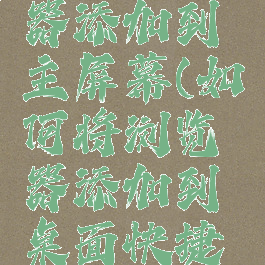 器添加到
主屏幕(如
何将浏览
器添加到
桌面快捷